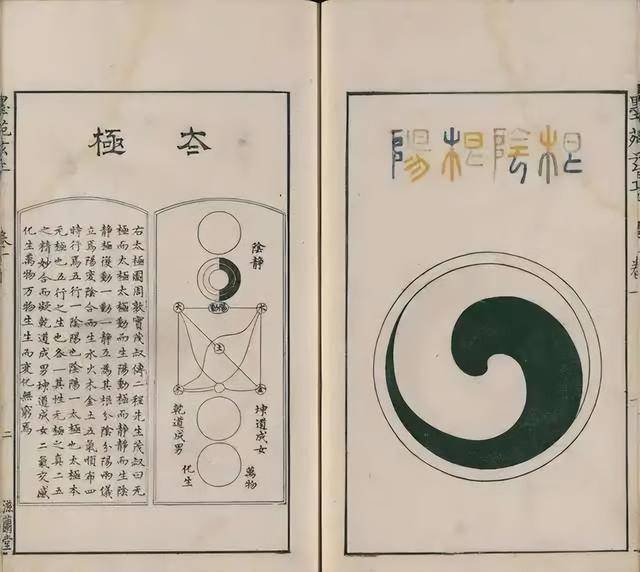 根陰根陽
夳極
陰靜
動陽
水
火
土
金
木
坤道成女
乾道成男
萬物
化生
右太極圖周敦實茂叔傳二程先生茂叔曰无
極而太極太極動而生陽動極而靜靜而生陰
靜極復動一動一靜互爲其根分陰分陽兩儀
立焉陽変陰合而生水火木金土五氣順布四
時行焉五行一陰陽也陰陽一太極也太極本
无極也五行之生也各一其性无極之真二五
之精妙合而凝乾道成男坤道成女二氣交感
化生萬物万物生生而変化無窮焉
卷一
二
滋蘭堂